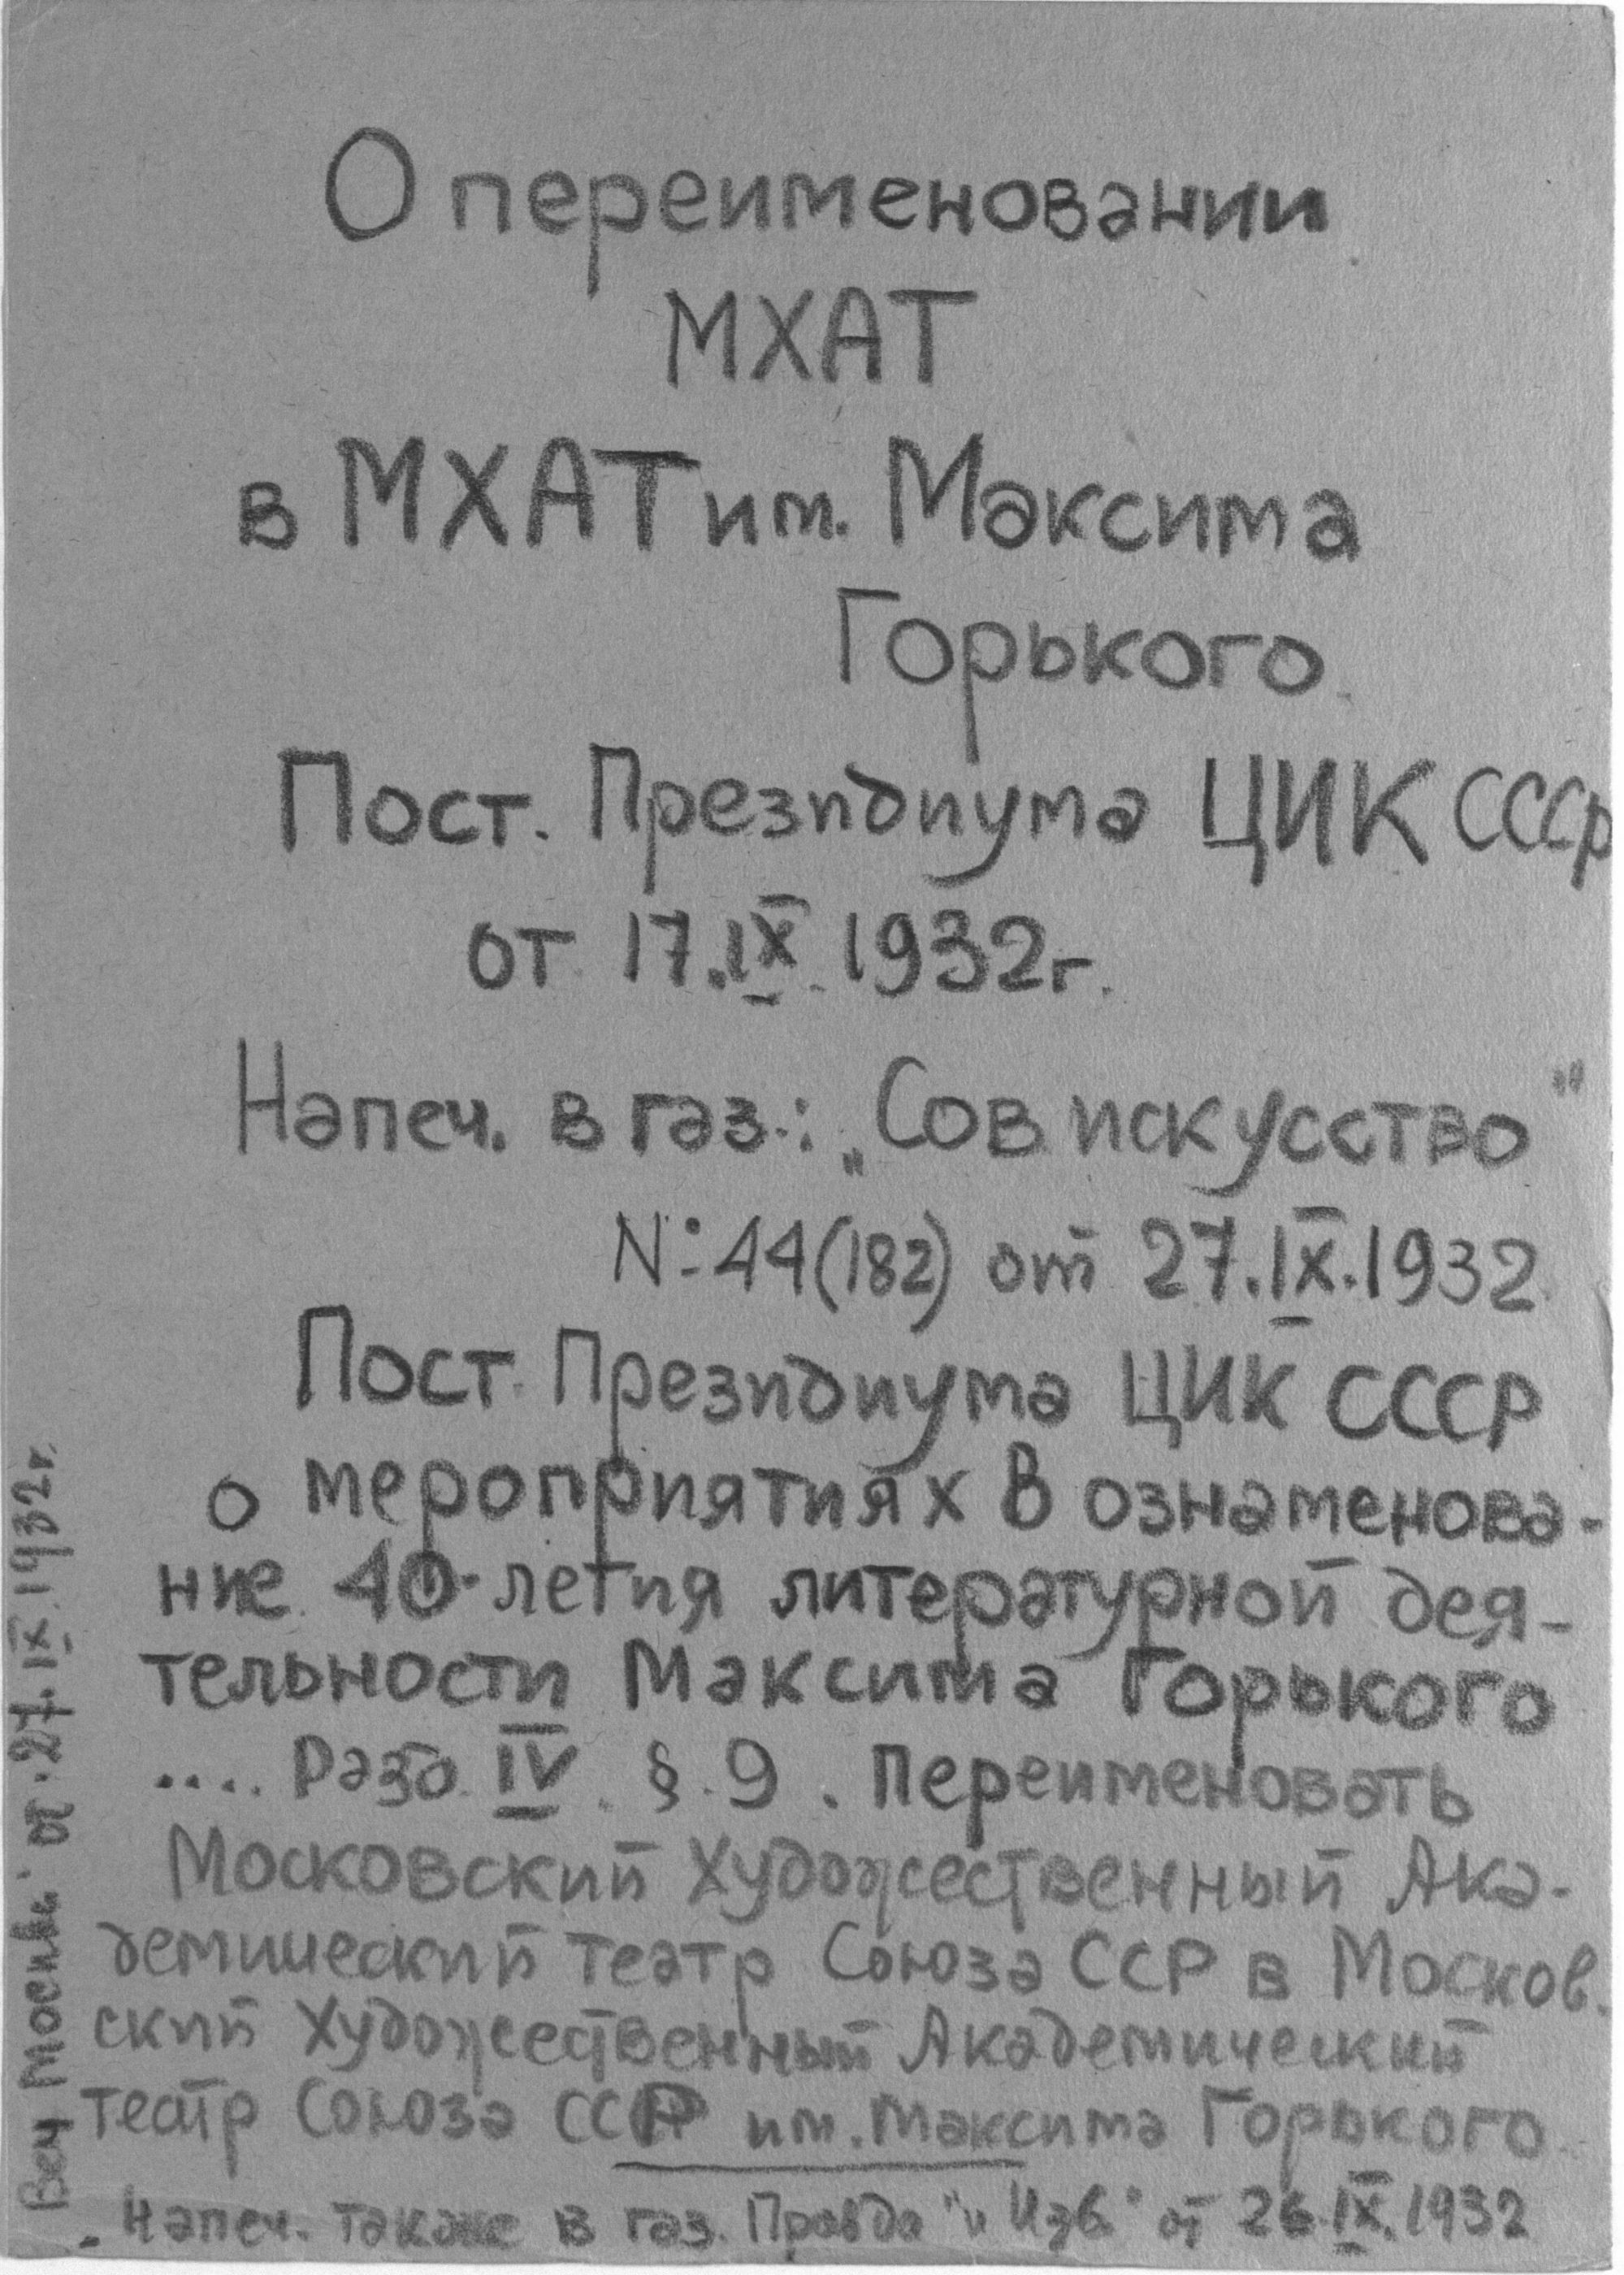 О переименовании
МХАТ
в МХАТ им. Максима
Горького.
Пост. Президиума ЦИК СССР
от 17.IX.1932г.
Напеч. в газ.: „Сов. искусство"
№ 44(182) от 27.IX.1932
Пост. Президиума ЦИК СССР
о мероприятиях в ознаменова-
ние 40-летия литературной дея-
тельности Максима Горького
.... Разд. IV. § 9. Переименовать
Московский Художественный Ака-
демический театр Союза ССР в Москов.
ский Художественный Академический
театр Союза ССР им. Максима Горького.
Напеч. также в газ. Правда" и Изв." от 26.IX.1932
Веч Москве" от 27.IX.1932г.